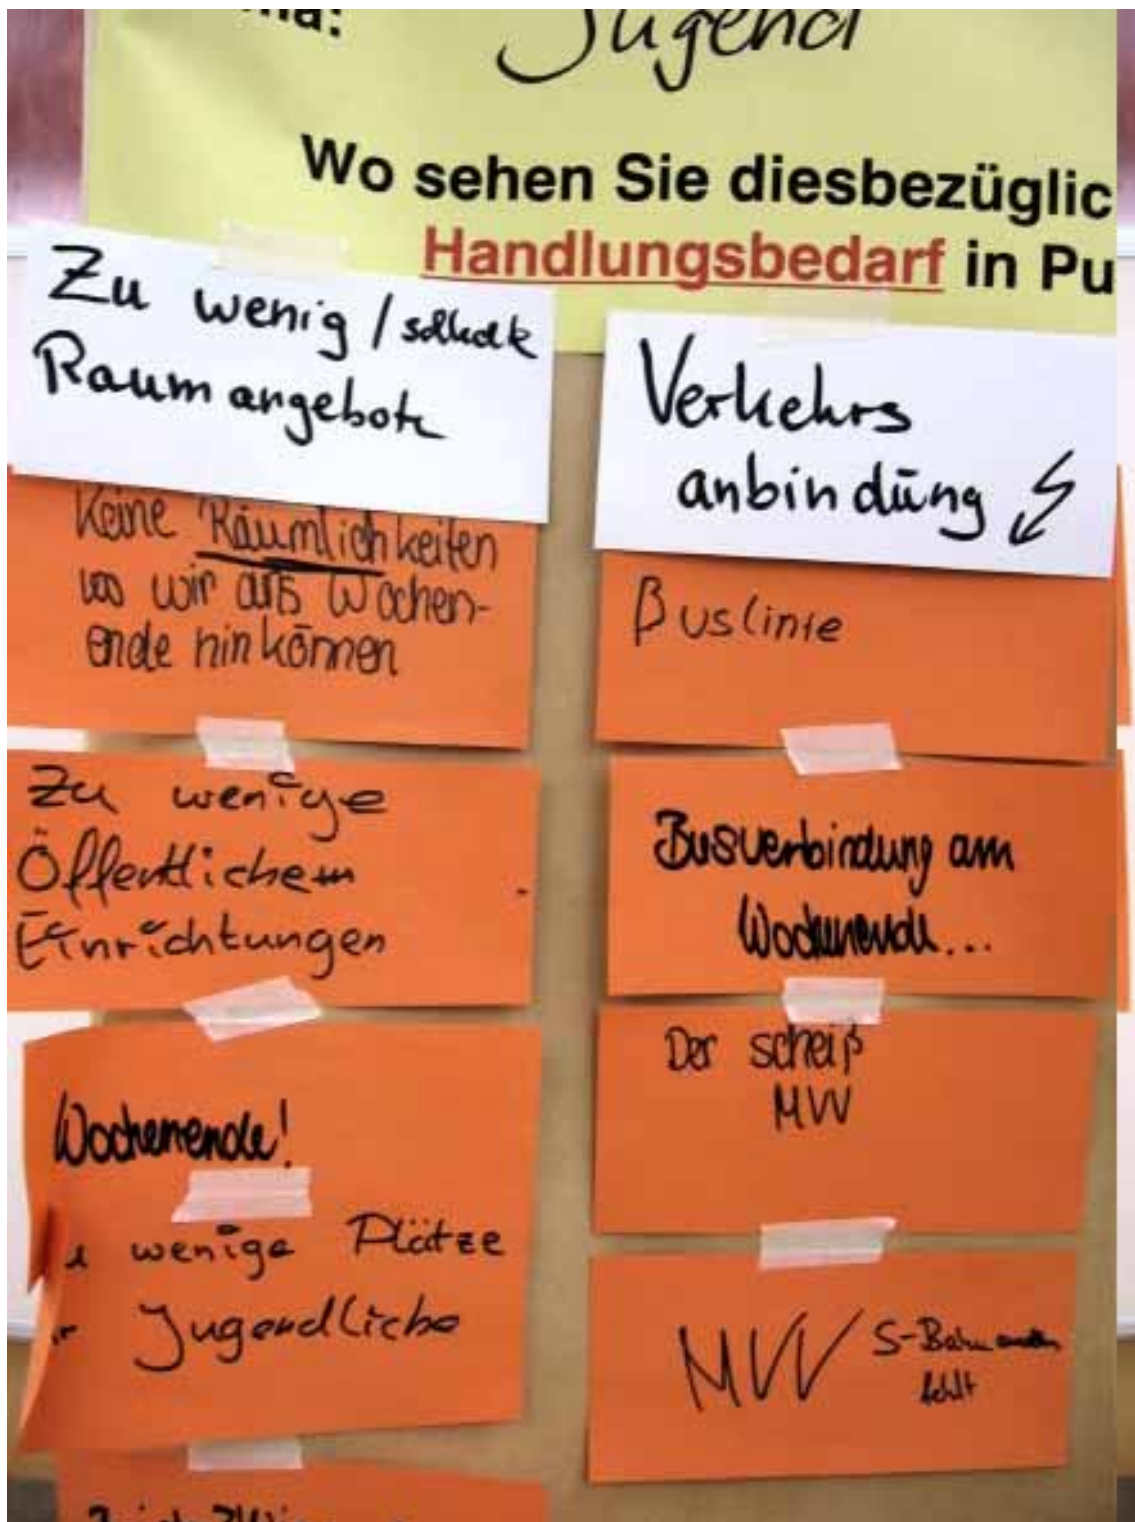 Jugend
Wo sehen Sie diesbezüglic
Handlungsbedarf in Pu
Zu wenig /
Raumangebote
Keine Räumlichkeiten
wo wir ans Wochen-
ende hin können
Zu wenige
Öffentlichen
Einrichtungen
Wochenende!
wenige Plätze
Jugendliche
Verkehrs
anbindung
Buslinie
Busverbindung am
Wochenende...
Der scheiß
MVV
MVV S-Bahn
fehlt